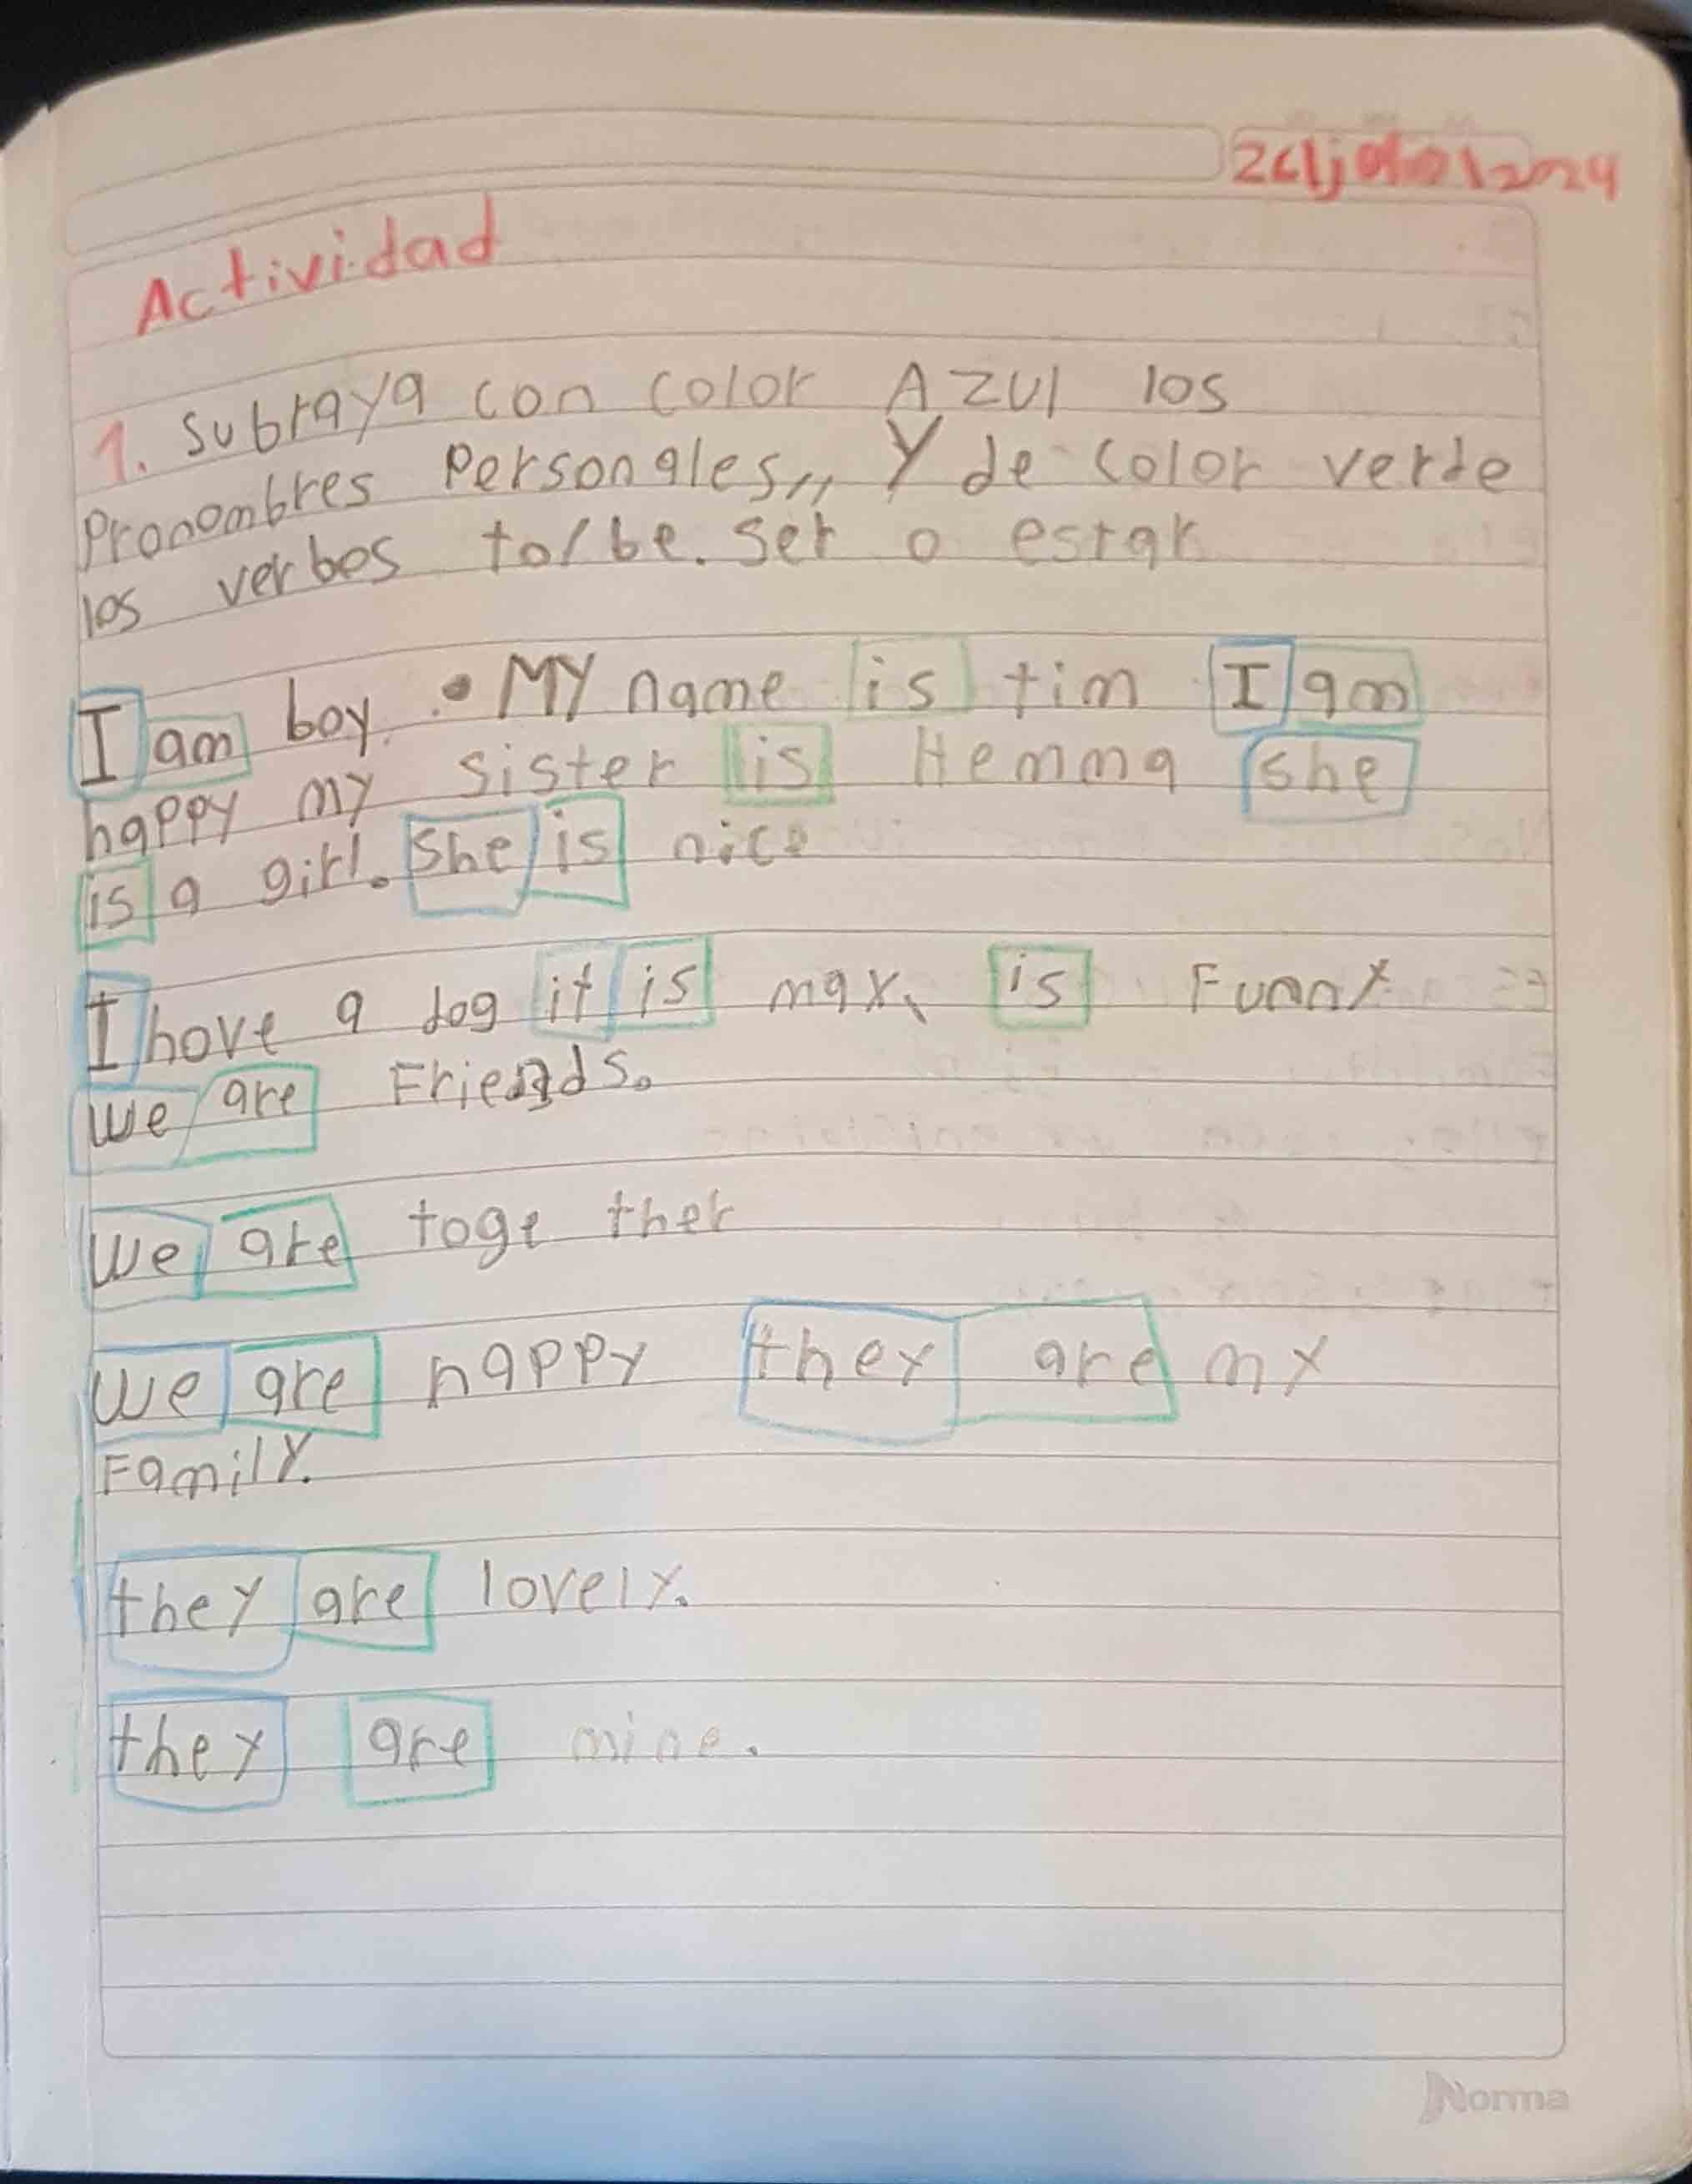 Actividad
1. Subraya con color Azul los
Pronombres Personales,, Y de color verde
los verbos to/be. Ser o estar
I am boy. • MY name is tim I am
happy my sister is Hemma she
is a girl. She is nice
I hove a dog it is max, is Funny
we are Friends.
We are toge ther
we are happy they are my
Family.
they are lovely.
they are mine.
Norma